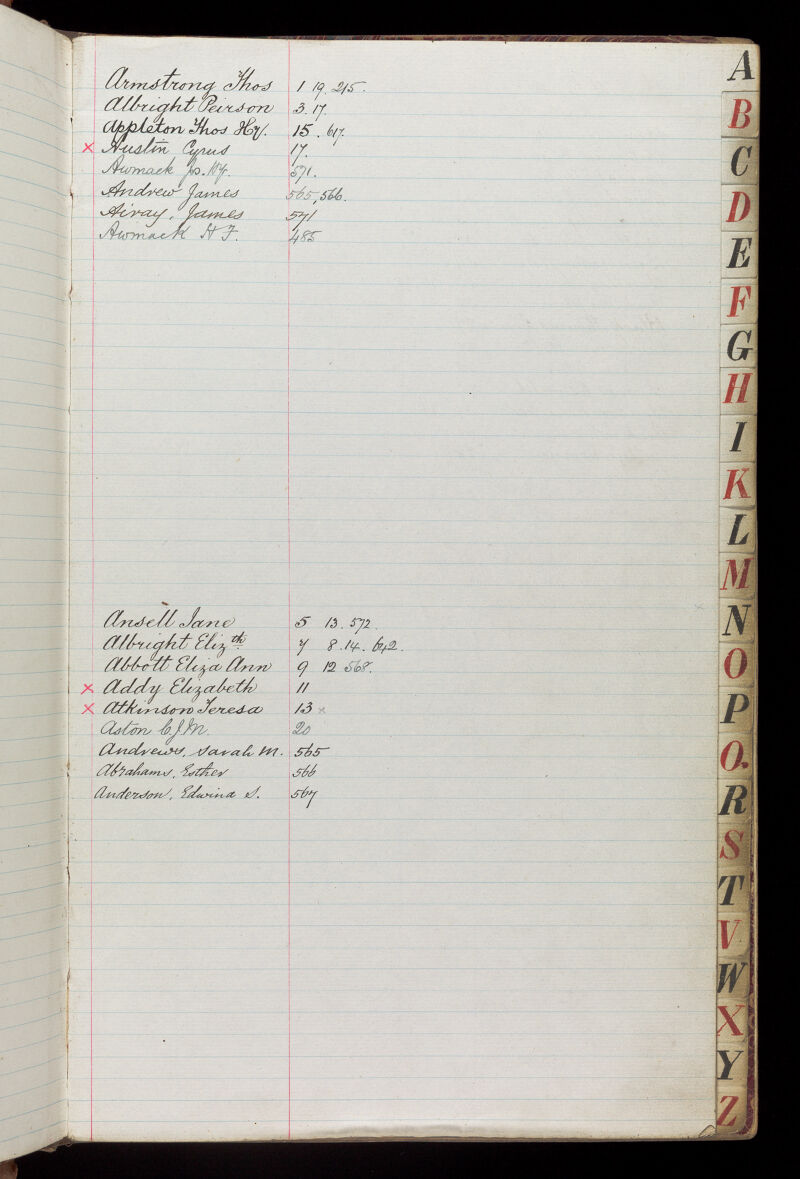 Armstrong Thos 1 19. 215.
Albright Peirson 3. 17.
Appleton Thos Hy. 15. 617.
x Austin Cyrus 17.
Awmack Jos. Hy. 571.
Andrew James 565, 566.
Airay, James 571
Awmack H F. 485
Ansell Jane 5 13. 572
Albright Elizth 7 8. 14. 642.
Abbott Eliza Ann 9 12 568.
x Addy Elizabeth 11
x Atkinson Teresa 13 x
Aston C.J.M. 20
Andrews, Sarah M. 565
Abrahams, Esther 566
Anderson, Edwina S. 567
A
B
C
D
E
F
G
H
I
K
L
M
N
O
P
Q.
R
S
T
V
W
X
Y
Z